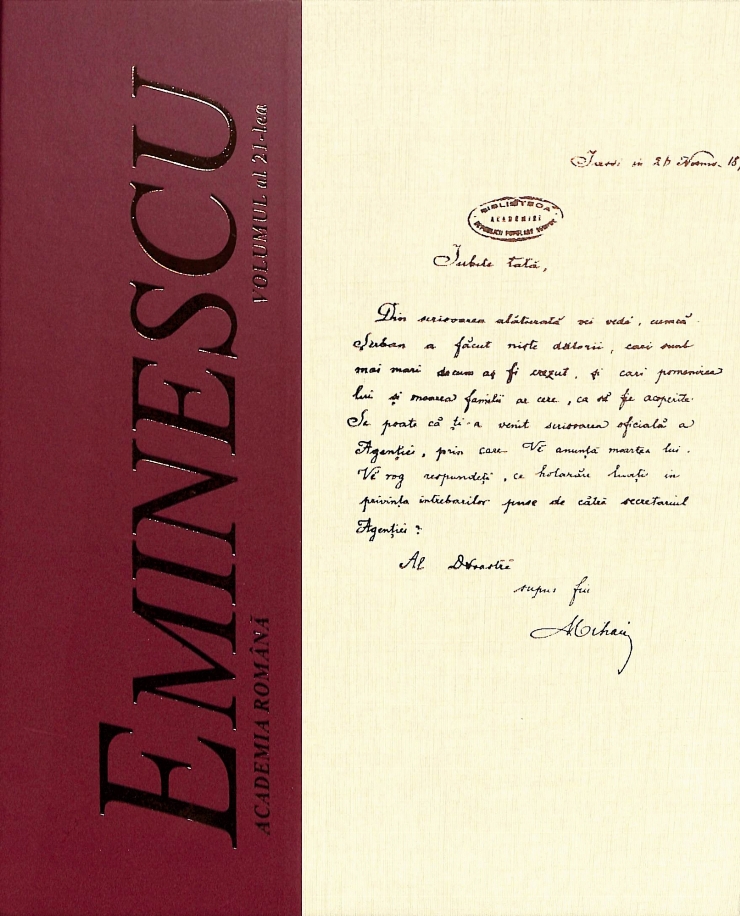 EMINESCU
VOLUMUL al 21-lea
ACADEMIA ROMÂNĂ
Iassi in 26 Noemv. 18
BIBLIOTECA
ACADEMIEI
REPUBLICII POPULARE ROMÂNE
Iubite tată,
Din scrisoarea alăturată vei vedé, cumcă
Șerban a făcut niște datorii, cari sunt
mai mari decum aș fi crezut, și cari pomenirea
lui și onoarea familii ar cere, ca să fie acoperite.
Se poate că ți-a venit scrisoarea oficială a
Agenției, prin care Vĕ anunță moartea lui.
Vĕ rog respundeți, ce hotarâre luați in
privința intrebarilor puse de cătră secretariul
Agenției?
Al Dvoastră
supus fiu
Mihaiu